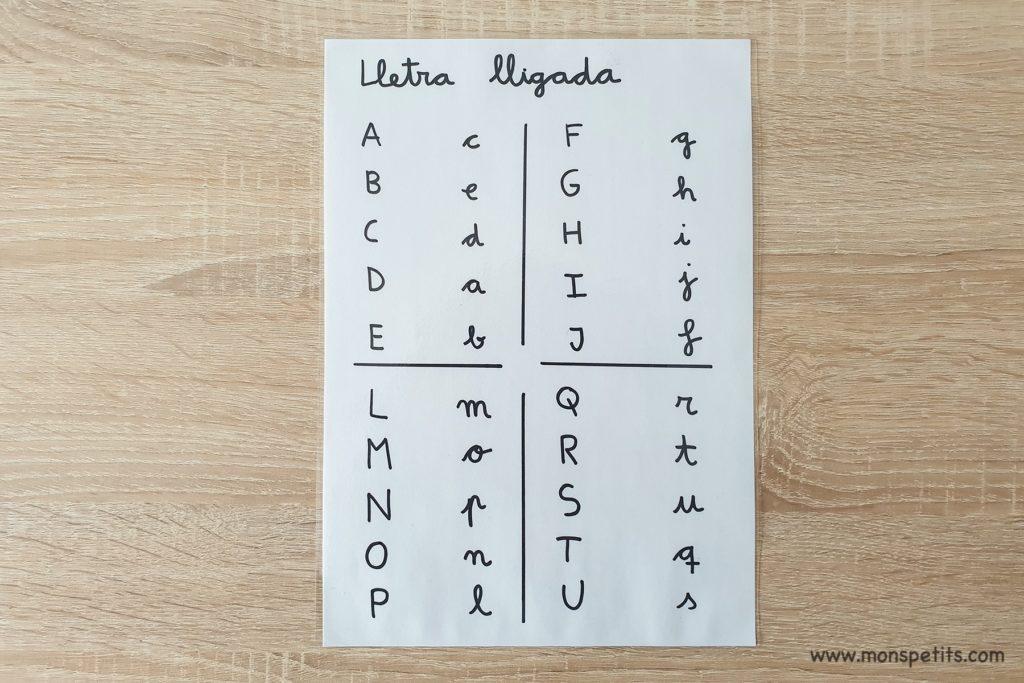 Lletra lligada
A c F g
B e G h
C d H i
D a I j
E b J f
L m Q r
M o R t
N p S u
O n T q
P l U s
www.monspetits.com